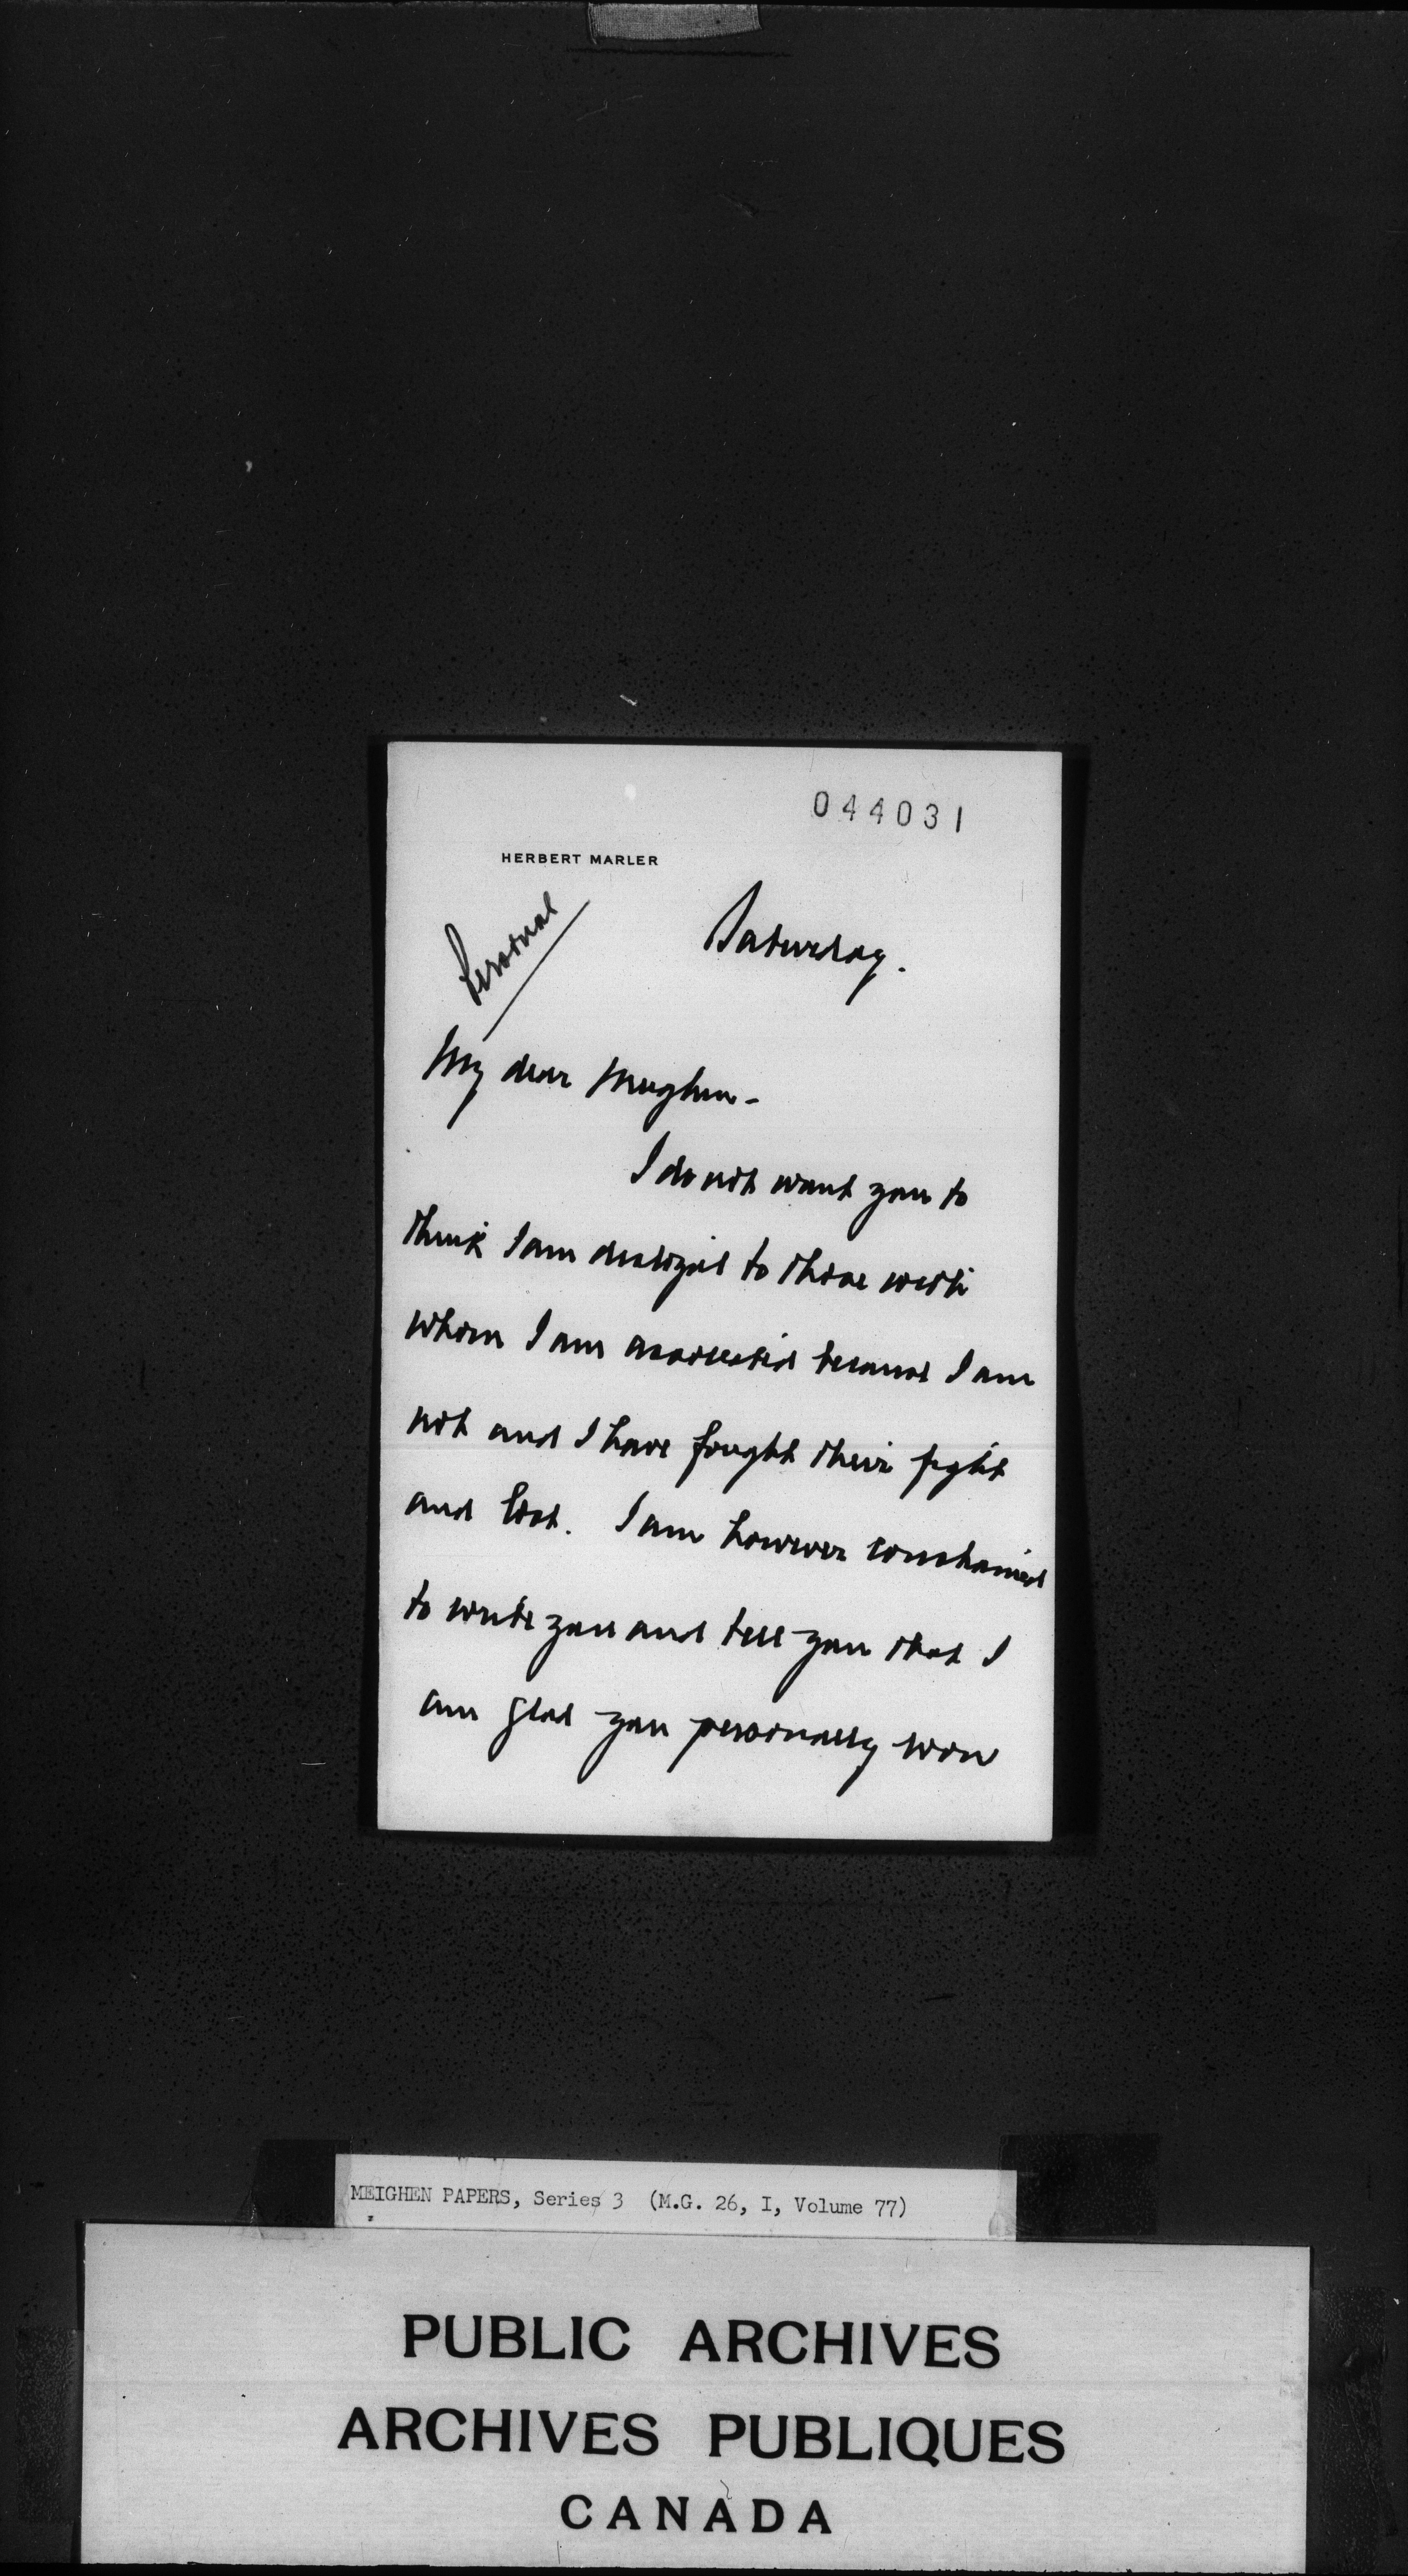 044031
HERBERT MARLER
Personal
Saturday.
My dear Meighen -
I do not want you to
think I am disloyal to those with
whom I am associated because I am
not and I have fought their fight
and lost. I am however constrained
to write you and tell you that I
am glad you personally won
MEIGHEN PAPERS, Series 3 (M.G. 26, I, Volume 77)
PUBLIC ARCHIVES
ARCHIVES PUBLIQUES
CANADA